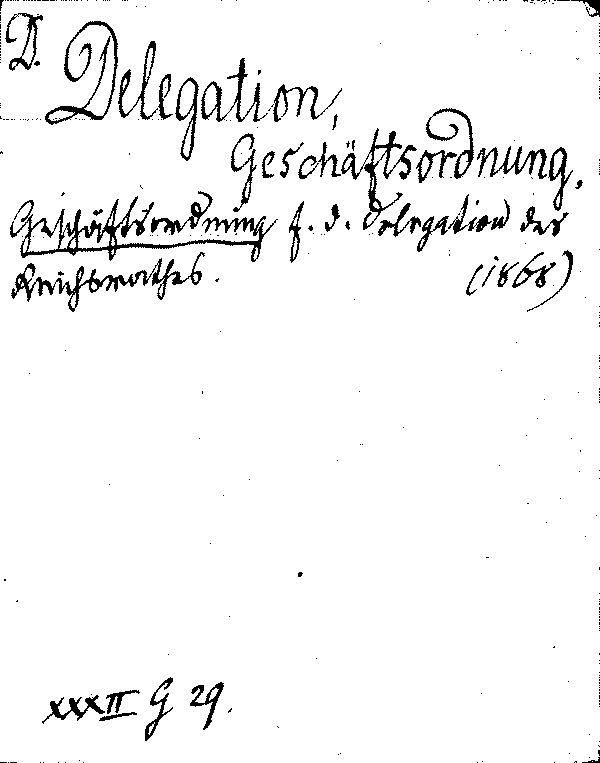 D.
Delegation,
Geschäftsordnung.
Geschäftsordnung f. d. Delegation des
Reichsrathes. (1868)
XXXII G 29.